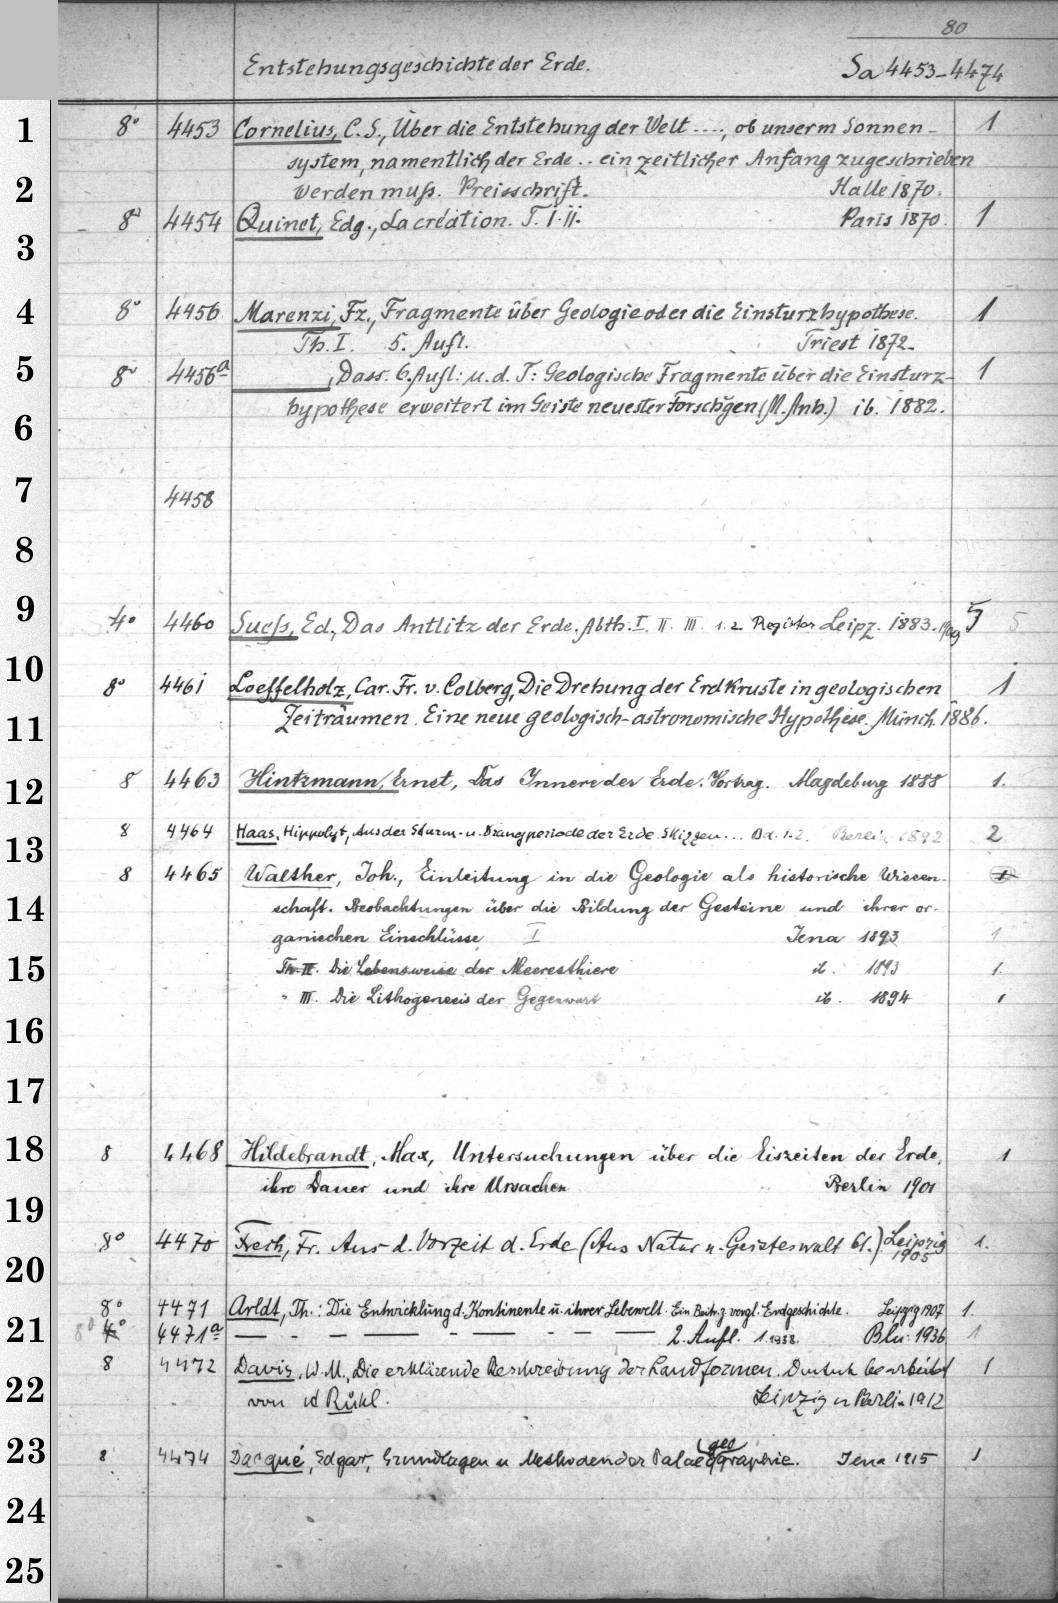 80
Entstehungsgeschichte der Erde. Sa 4453-4474
1
8° 4453 Cornelius, C. S., Über die Entstehung der Welt ...., ob unserm Sonnen- 1
system, namentlich der Erde .. ein zeitlicher Anfang zugeschrieben
2
werden muß. Preisschrift. Halle 1870.
8° 4454 Quinet, Edg., La création. T. I. II. Paris 1870. 1
3
4
8° 4456 Marenzi, Fz., Fragmente über Geologie oder die Einsturzhypothese. 1
Th. I. 5. Aufl. Triest 1872.
5
8° 4456a ———, Dass. 6. Aufl: u. d. T: Geologische Fragmente über die Einsturz- 1
hypothese erweitert im Geiste neuester Forschgen (M. Anh.) ib. 1882.
6
7
4458
8
9
4° 4460 Sueß, Ed., Das Antlitz der Erde. Abth. I. II. III. 1. 2 Register Leipz. 1883-1909 5 5
10
8° 4461 Loeffelholz, Car. Fr. v. Colberg, Die Drehung der Erdkruste in geologischen 1
Zeiträumen. Eine neue geologisch-astronomische Hypothese. Münch. 1886.
11
12
8 4463 Hintzmann, Ernst, Das Innere der Erde. Vortrag. Magdeburg 1888 1.
8 4464 Haas, Hippolyt, Aus der Sturm- u. Drangperiode der Erde. Skizzen... Bd. 1.2. Berlin 1892 2
13
8 4465 Walther, Joh., Einleitung in die Geologie als historische Wissen- 1
14
schaft. Beobachtungen über die Bildung der Gesteine und ihrer or-
ganischen Einschlüsse I Jena 1893 1
15
Th. II. Die Lebensweise der Meeresthiere ib. 1893 1.
" III. Die Lithogenesis der Gegenwart ib. 1894 1
16
17
18
8 4468 Hildebrandt, Max, Untersuchungen über die Eiszeiten der Erde, 1
ihre Dauer und ihre Ursachen Berlin 1901
19
8° 4470 Frech, Fr. Aus d. Vorzeit d. Erde (Aus Natur u. Geisteswelt 61.) Leipzig 1905 1.
20
8° 4471 Arldt, Th.: Die Entwicklung d. Kontinente u. ihrer Lebewelt. Ein Beitr. z. vergl. Erdgeschichte. Leipzig 1907 1.
21
8° 4° 4471a — - — — - — - - — 2. Aufl. 1. 1938. Bln: 1936 1
8 4472 Davis, W. M., Die erklärende Beschreibung der Landformen. Deutsch bearbeitet 1
22
von Rühl. Leipzig u Berlin 1912
23
8 4474 Dacqué, Edgar, Grundlagen u Methoden der Palaeogeographie. Jena 1915 1
24
25